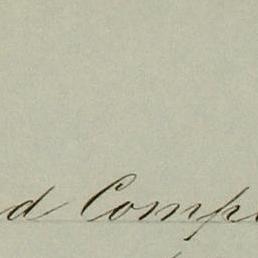 d Comp